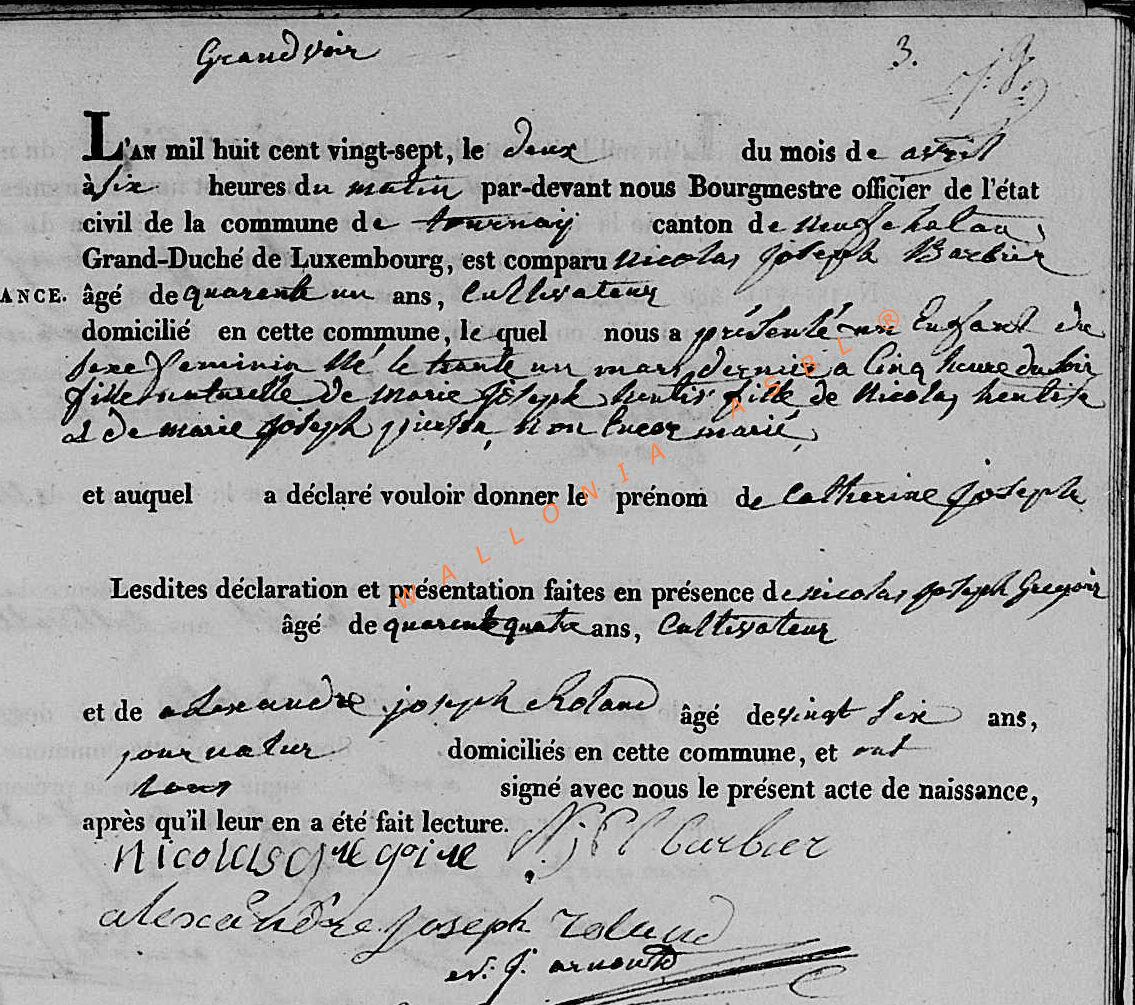 Grandvoir
3.
L'AN mil huit cent vingt-sept, le deux du mois de avril
à six heures du matin par-devant nous Bourgmestre officier de l'état
civil de la commune de tournay canton de neufchatau,
Grand-Duché de Luxembourg, est comparu nicolas joseph Barbier
ANCE. âgé de quarente un ans, Cultivateur
domicilié en cette commune, le quel nous a présenté un Enfant du
sexe feminin né le trante un mars dernier a Cinq heure du soir
fille naturelle de marie joseph hentis fille de Nicolas hentise
et de marie joseph, non Encor marié,
et auquel a déclaré vouloir donner le prénom de Catherine Joseph
Lesdites déclaration et présentation faites en présence de nicolas joseph Gregoir
âgé de quarente quatre ans, Cultivateur
et de alexandre joseph Roland âgé de vingt six ans,
journalier domiciliés en cette commune, et ont
tous signé avec nous le présent acte de naissance,
après qu'il leur en a été fait lecture.
nicolas gregoire N: j Barbier
alexandre joseph roland
N. J. arnould
WALLONIA ASBL ®